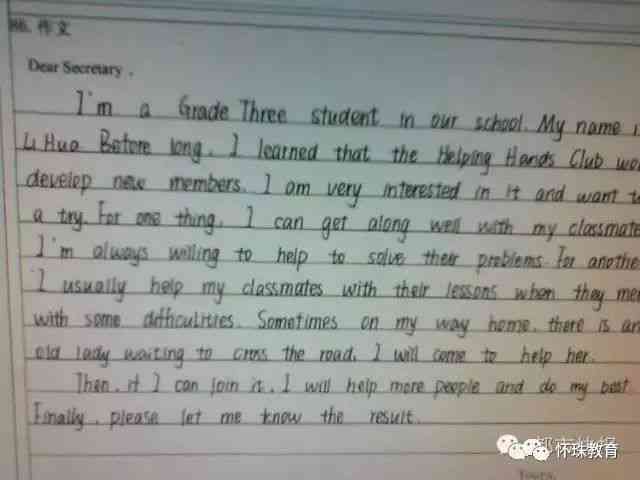 86. 作文
Dear Secretary,
I'm a Grade Three student in our school. My name i
Li Hua Before long, I learned that the Helping Hands Club wo
develop new members. I am very interested in it and want t
a try. For one thing, I can get along well with my classmate
I'm always willing to help to solve their problems. For anothe
I usually help my classmates with their lessons when they me
with some difficulities. Sometimes on my way home, there is an
old lady waiting to cross the road, I will come to help her.
Then, if I can join it, I will help more people and do my best
Finally, please let me know the result.
怀珠教育
Yours,